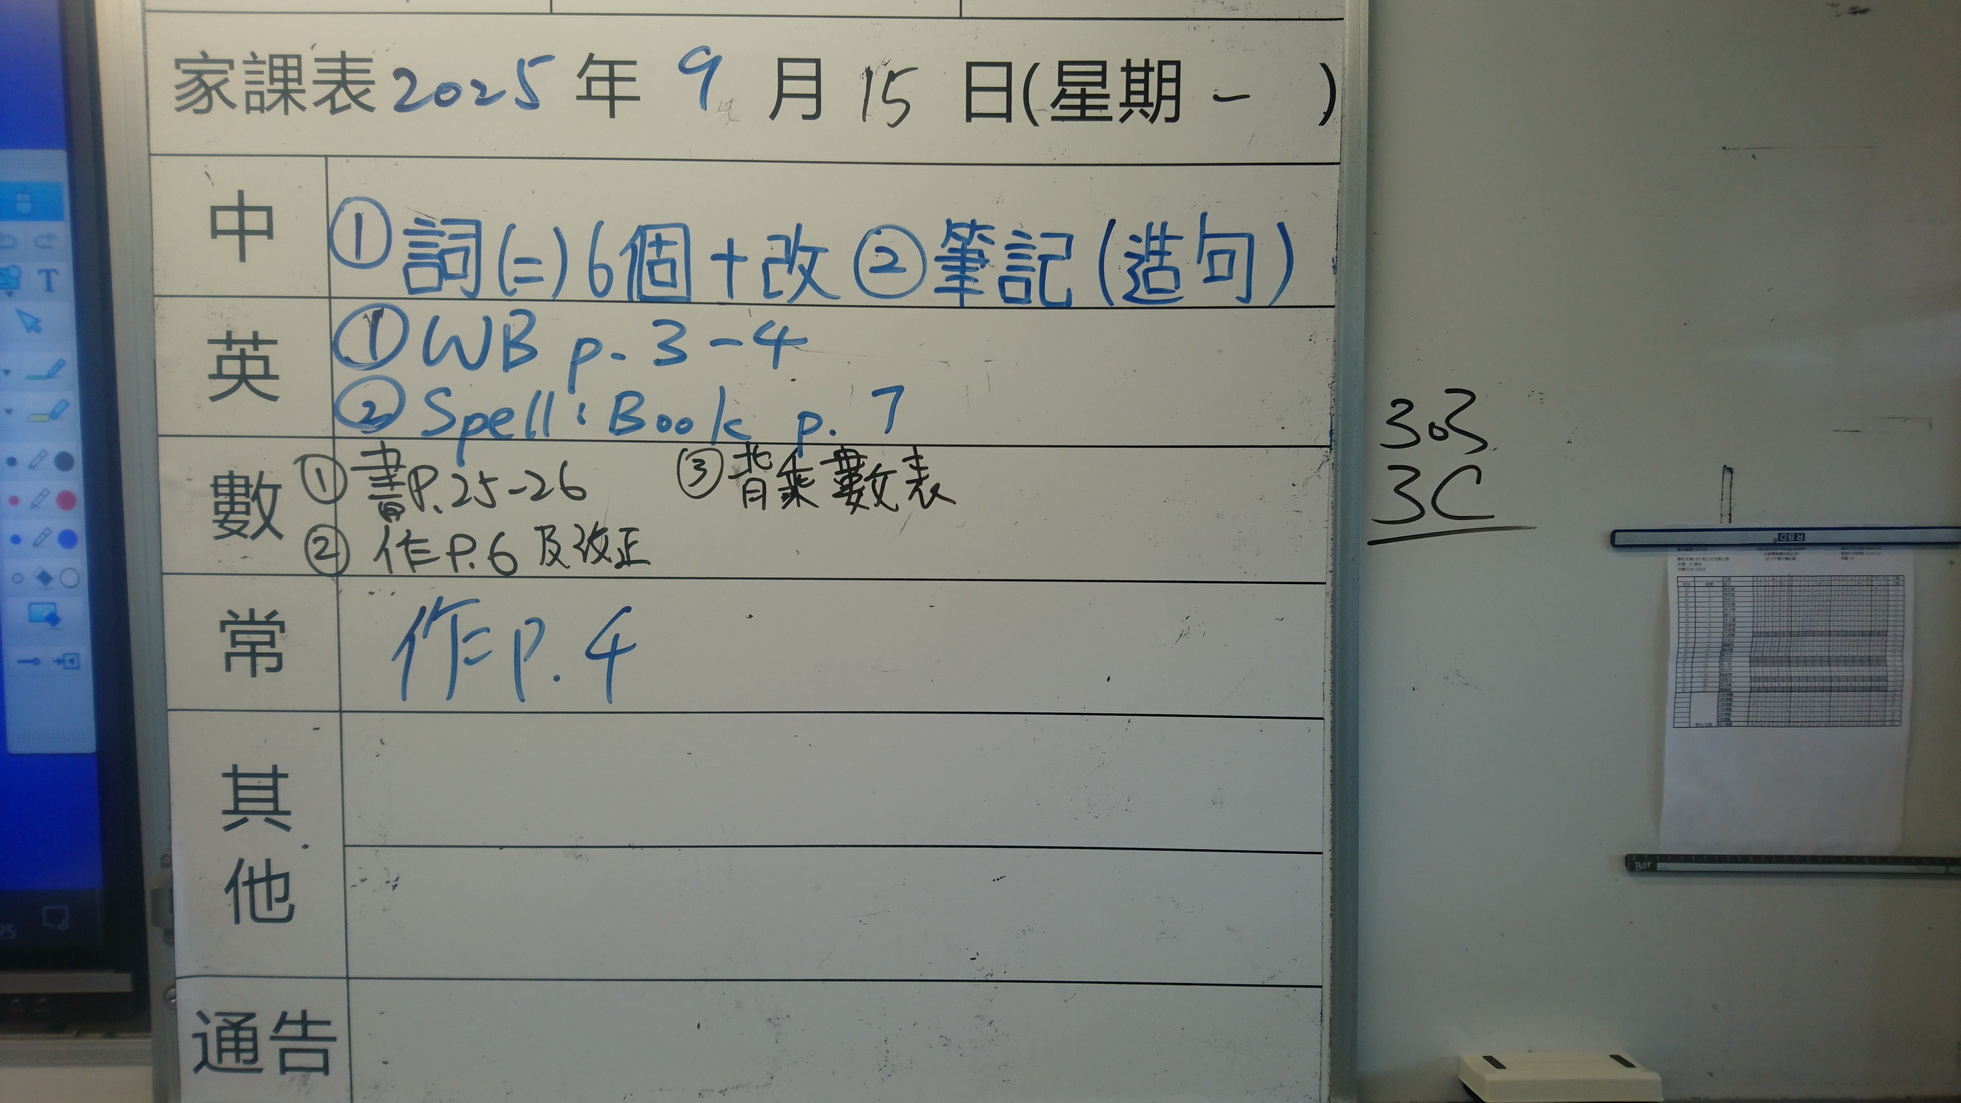 家課表 2025 年 9 月 15 日(星期 一 )
中 ① 詞(二) 6個 + 改 ② 筆記 (造句)
英 ① WB p. 3-4
② Spell: Book p. 7
數 ① 書P.25-26 ③ 背乘數表
② 作P.6 及改正
常 作 P. 4
其他
通告
303
3C
T